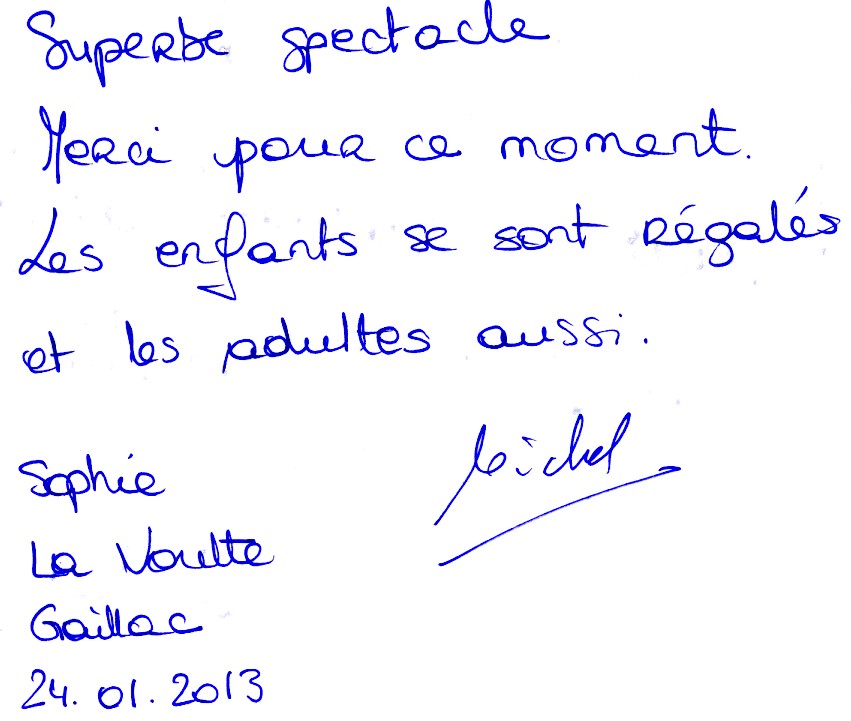 Superbe spectacle
Merci pour ce moment.
Les enfants se sont régalés
et les adultes aussi.
Sophie
La Voulte
Gaillac
24.01.2013
Michel